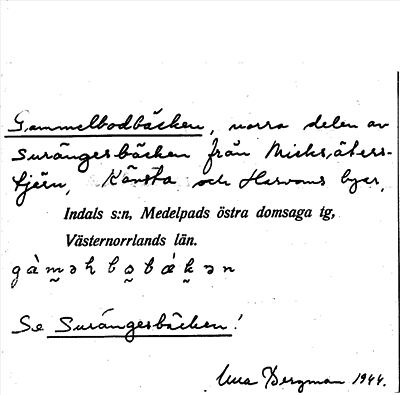 Gammelbodbäcken, norra delen av
Surängesbäcken från Micksäters-
tjärn, Kävsta och Havoms byar,
Indals s:n, Medelpads östra domsaga tg,
Västernorrlands län.
Se Surängesbäcken!
Bergman 1944.